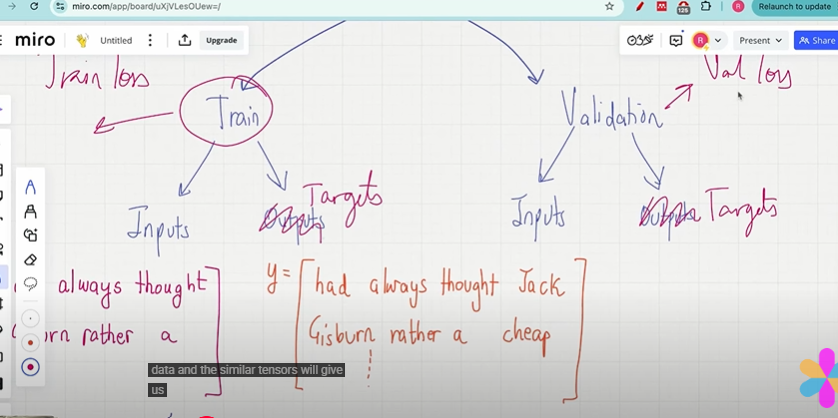 miro.com/app/board/uXjVLesOUew=/
125
R
Relaunch to update
miro
Untitled
Upgrade
R
Present
Share
Train loss
Val loss
Train
Validation
Inputs
Outputs
Targets
Inputs
Outputs
Targets
always thought
rather a
y=
had always thought Jack
Gisburn rather a cheap
data and the similar tensors will give
us